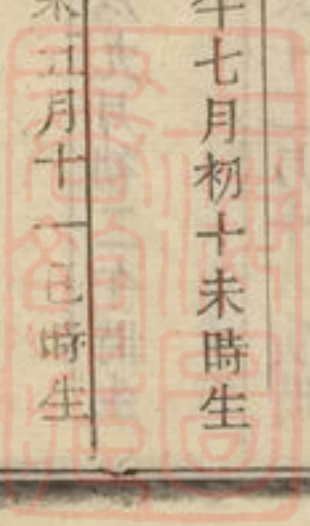 七月初十未時生
五月十一巳時生